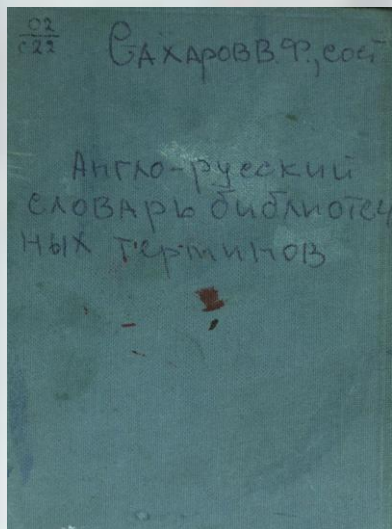 02
С22
Сахаров В.Ф., сост
Англо-русский
словарь библиотеч
ных терминов